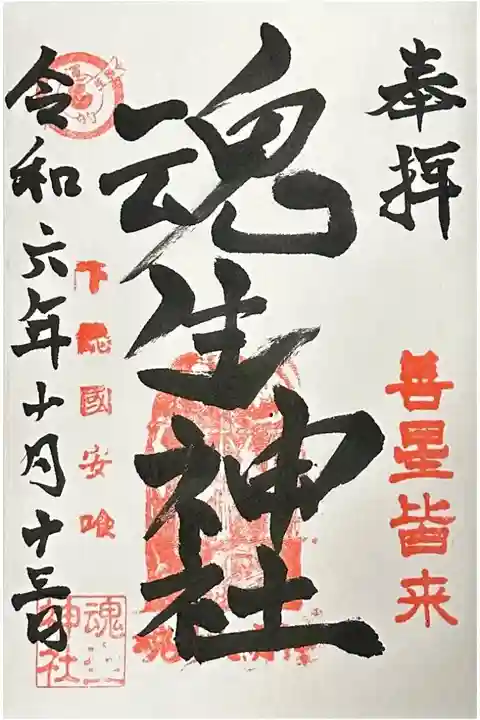 奉拝
善星皆来
魂生神社
令和六年十月十三日
下総國安喰
魂生神社